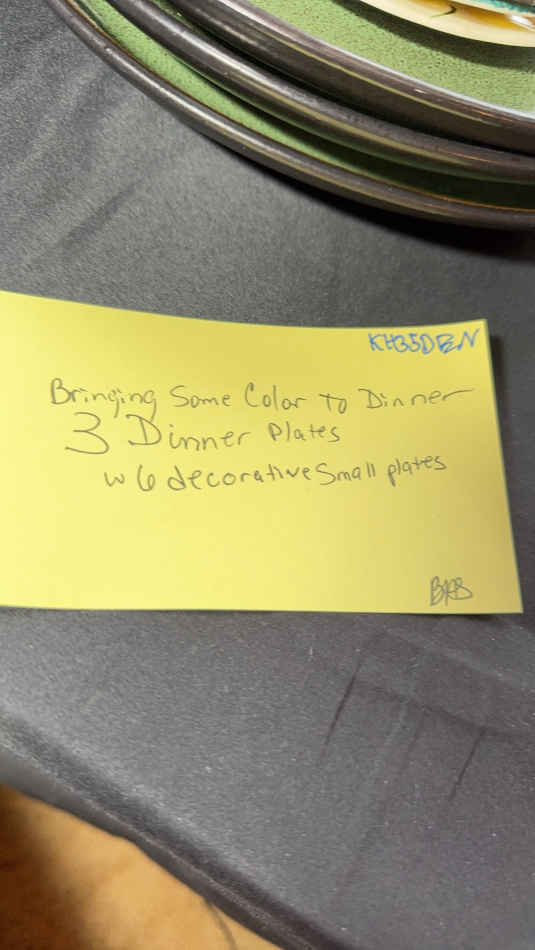 KH35DBN
Bringing Some Color to Dinner
3 Dinner Plates
w 6 decorative Small plates
BRB